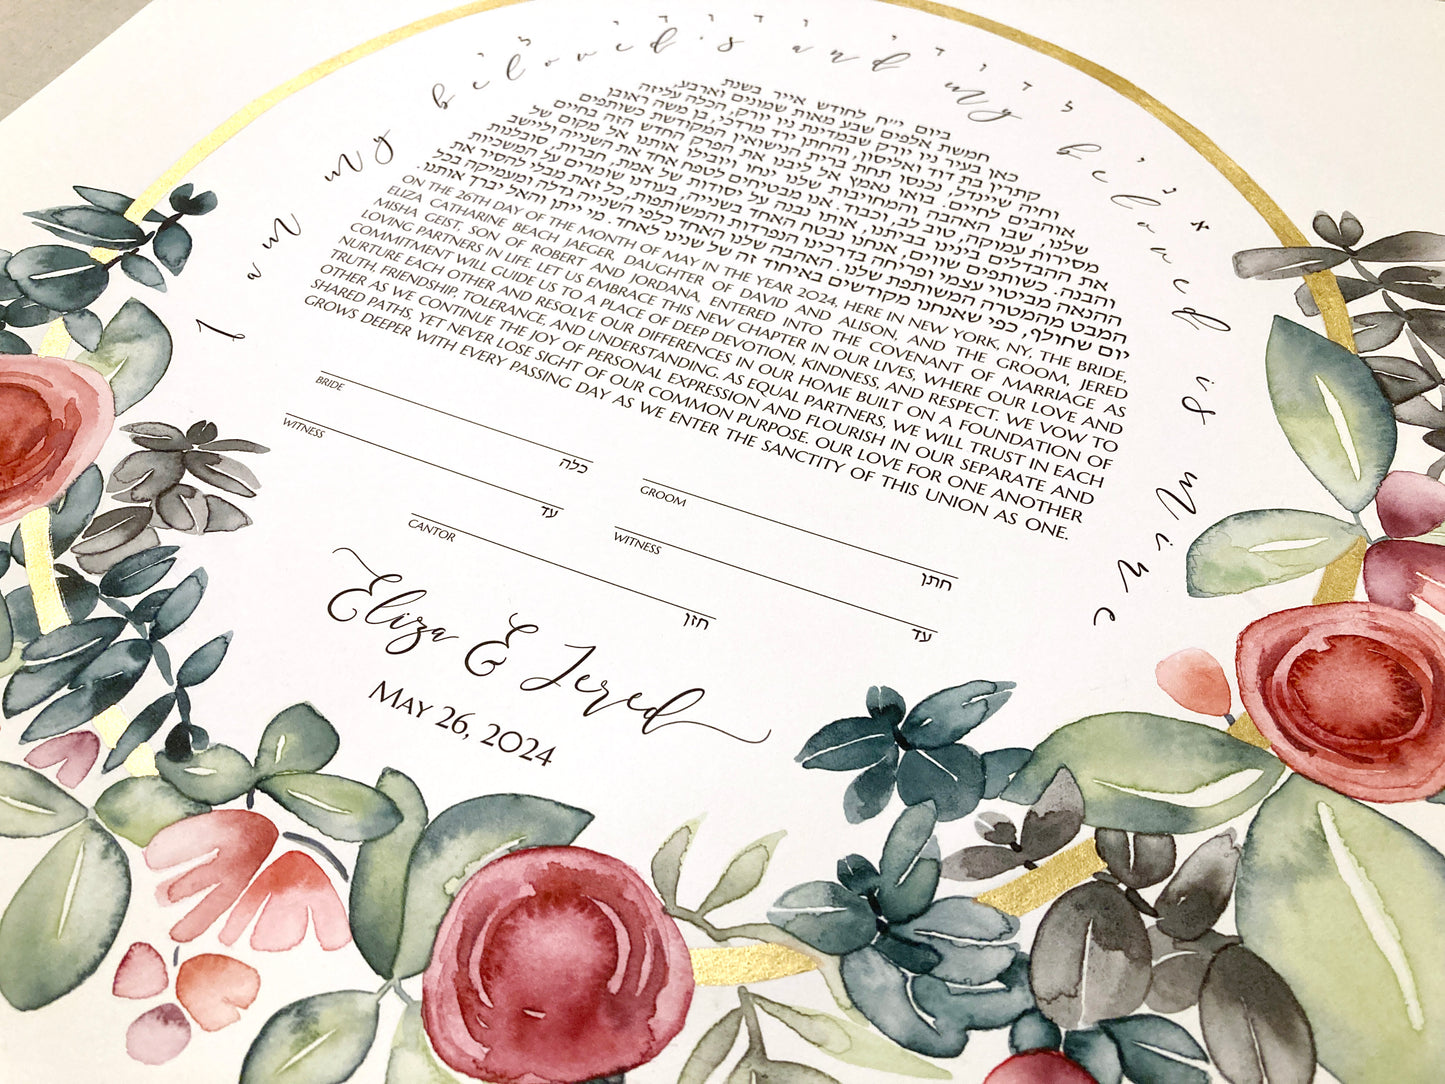 אני לדודי ודודי לי
I am my beloved's and my beloved is mine
ביום י״ח לחודש אייר בשנת
חמשת אלפים שבע מאות שמונים וארבע,
כאן בעיר ניו יורק שבמדינת ניו יורק, הכלה עליזה
קתרין בת דוד ואליסון, והחתן ירד מרדכי, בן משה ראובן
וחיה שיינדל, נכנסו תחת ברית הנישואין המקודשת כשותפים
אוהבים לחיים. בואו נאמץ אל ליבנו את הפרק החדש הזה בחיים
שלנו, שבו האהבה והמחויבות שלנו ינחו ויובילו אותנו אל מקום של
מסירות עמוקה, טוב לב, וכבוד. אנו מבטיחים לטפח אחד את השנייה וליישב
את ההבדלים בינינו בביתנו, אותו נבנה על יסודות של אמת, חברות, סובלנות
והבנה. כשותפים שווים, אנחנו נבטח האחד בשנייה, בעודנו שומרים על המשכיות
ההנאה מביטוי עצמי ופריחה בדרכינו הנפרדות והמשותפות, כל זאת מבלי להסיר את
המבט מהמטרה המשותפת שלנו. האהבה שלנו האחד כלפי השנייה גדלה ומעמיקה בכל
יום שחולף, כפי שאנחנו מקודשים באיחוד זה של שנינו לאחד. מי ייתן והאל יברך אותנו.
ON THE 26TH DAY OF THE MONTH OF MAY IN THE YEAR 2024, HERE IN NEW YORK, NY, THE BRIDE,
ELIZA CATHARINE BEACH JAEGER, DAUGHTER OF DAVID AND ALISON, AND THE GROOM, JERED
MISHA GEIST, SON OF ROBERT AND JORDANA, ENTERED INTO THE COVENANT OF MARRIAGE AS
LOVING PARTNERS IN LIFE. LET US EMBRACE THIS NEW CHAPTER IN OUR LIVES, WHERE OUR LOVE AND
COMMITMENT WILL GUIDE US TO A PLACE OF DEEP DEVOTION, KINDNESS, AND RESPECT. WE VOW TO
NURTURE EACH OTHER AND RESOLVE OUR DIFFERENCES IN OUR HOME BUILT ON A FOUNDATION OF
TRUTH, FRIENDSHIP, TOLERANCE, AND UNDERSTANDING. AS EQUAL PARTNERS, WE WILL TRUST IN EACH
OTHER AS WE CONTINUE THE JOY OF PERSONAL EXPRESSION AND FLOURISH IN OUR SEPARATE AND
SHARED PATHS, YET NEVER LOSE SIGHT OF OUR COMMON PURPOSE. OUR LOVE FOR ONE ANOTHER
GROWS DEEPER WITH EVERY PASSING DAY AS WE ENTER THE SANCTITY OF THIS UNION AS ONE.
BRIDE כלה GROOM חתן
WITNESS עד WITNESS עד
CANTOR חזן
Eliza & Jered
MAY 26, 2024